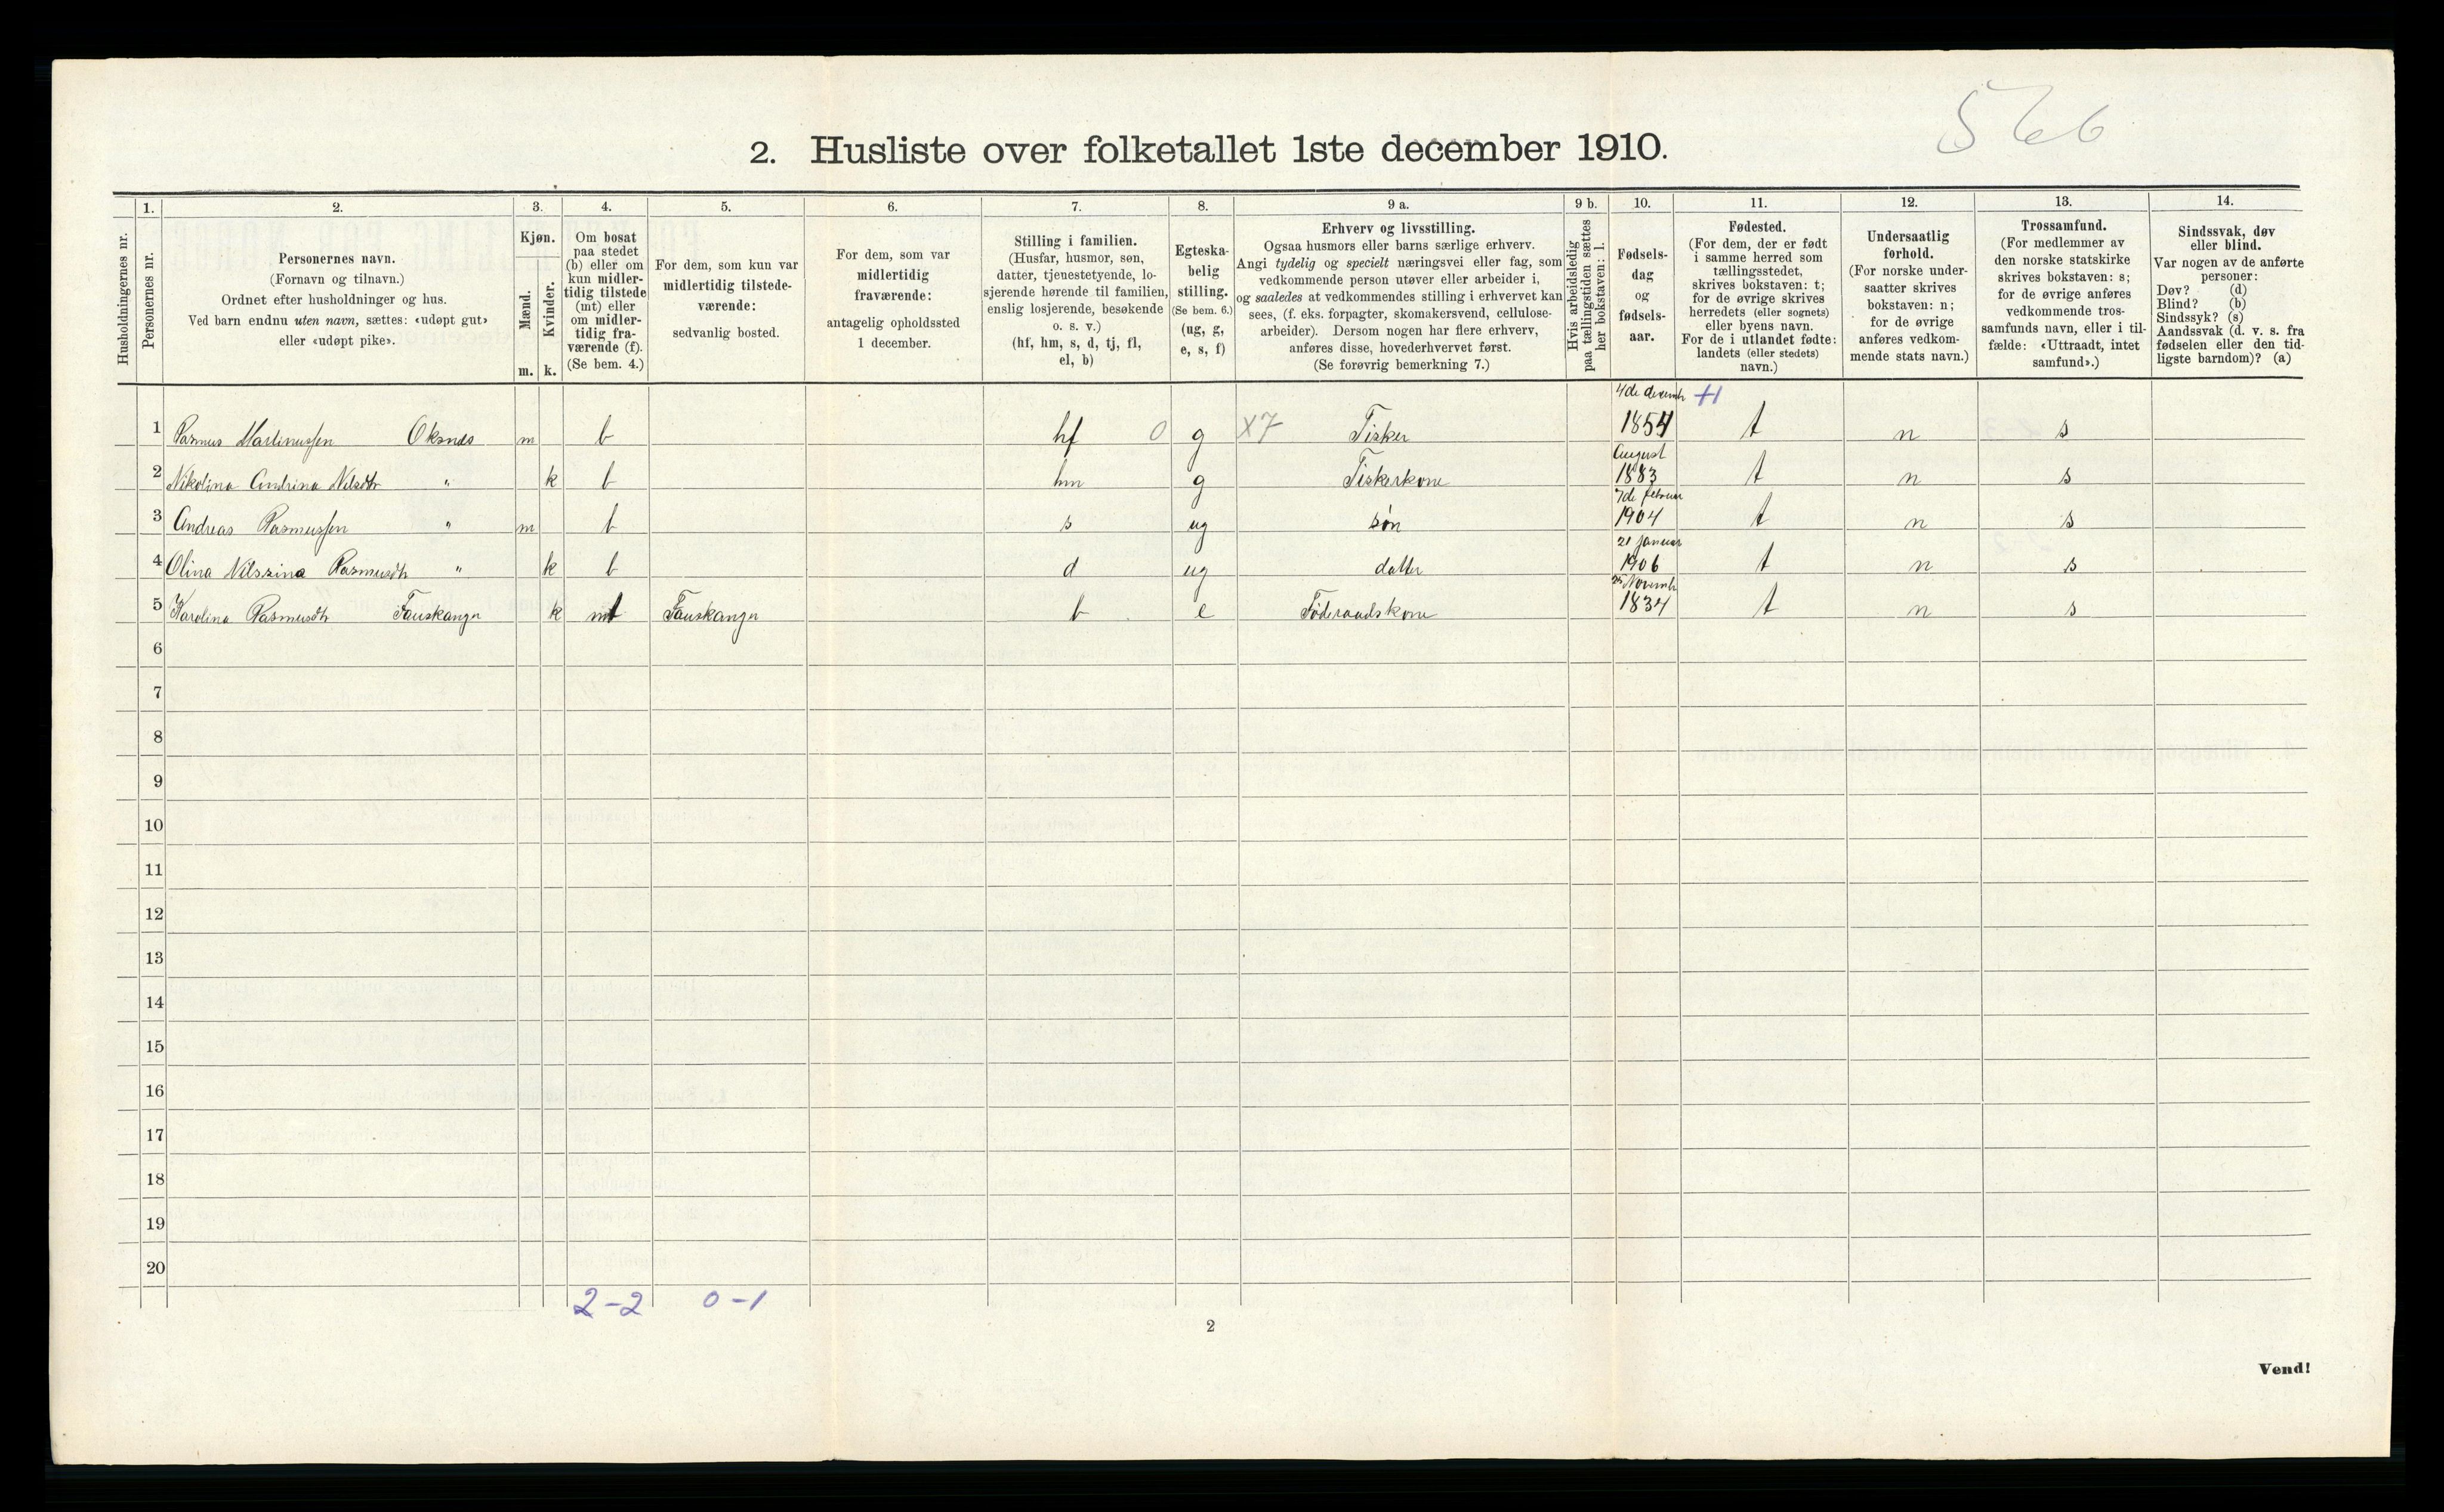 566
2. Husliste over folketallet 1ste december 1910.
Husholdningernes nr.
1. Personernes nr.
2. Personernes navn.
(Fornavn og tilnavn.)
Ordnet efter husholdninger og hus.
Ved barn endnu uten navn, sættes: «udøpt gut»
eller «udøpt pike».
3. Kjøn.
Mænd. Kvinder.
m. k.
4. Om bosat
paa stedet
(b) eller om
kun midler-
tidig tilstede
(mt) eller
om midler-
tidig fra-
værende (f).
(Se bem. 4.)
5. For dem, som kun var
midlertidig tilstede-
værende:
sedvanlig bosted.
6. For dem, som var
midlertidig
fraværende:
antagelig opholdssted
1 december.
7. Stilling i familien.
(Husfar, husmor, søn,
datter, tjenestetyende, lo-
sjerende hørende til familien,
enslig losjerende, besøkende
o. s. v.)
(hf, hm, s, d, tj, fl,
el, b)
8. Egteska-
belig
stilling.
(Se bem. 6.)
(ug, g,
e, s, f)
9 a. Erhverv og livsstilling.
Ogsaa husmors eller barns særlige erhverv.
Angi tydelig og specielt næringsvei eller fag, som
vedkommende person utøver eller arbeider i,
og saaledes at vedkommendes stilling i erhvervet kan
sees, (f. eks. forpagter, skomakersvend, cellulose-
arbeider). Dersom nogen har flere erhverv,
anføres disse, hovederhvervet først.
(Se forøvrig bemerkning 7.)
9 b. Hvis arbeidsledig
paa tællingstiden sættes
her bokstaven: l.
10. Fødsels-
dag
og
fødsels-
aar.
11. Fødested.
(For dem, der er født
i samme herred som
tællingsstedet,
skrives bokstaven: t;
for de øvrige skrives
herredets (eller sognets)
eller byens navn.
For de i utlandet fødte:
landets (eller stedets)
navn.)
12. Undersaatlig
forhold.
(For norske under-
saatter skrives
bokstaven: n;
for de øvrige
anføres vedkom-
mende stats navn.)
13. Trossamfund.
(For medlemmer av
den norske statskirke
skrives bokstaven: s;
for de øvrige anføres
vedkommende tros-
samfunds navn, eller i til-
fælde: «Uttraadt, intet
samfund».)
14. Sindssvak, døv
eller blind.
Var nogen av de anførte
personer:
Døv? (d)
Blind? (b)
Sindssyk? (s)
Aandssvak (d. v. s. fra
fødselen eller den tid-
ligste barndom)? (a)
1 Rasmus Martinussen Oksnes m b hf 0 g X7 Fisker 4de decembr 1854 +1 t n s
2 Nikolina Andrina Nilsdtr " k b hm g Fiskerkone August 1883 t n s
3 Andreas Rasmussen " m b s ug søn 7de februar 1904 t n s
4 Olina Nilssina Rasmusdtr " k b d ug datter 21 januar 1906 t n s
5 Karolina Rasmusdtr Fauskanger k mt Fauskanger b e Føderaadskone Novembr 1834 t n s
6
7
8
9
10
11
12
13
14
15
16
17
18
19
20
2-2 0-1
2
Vend!